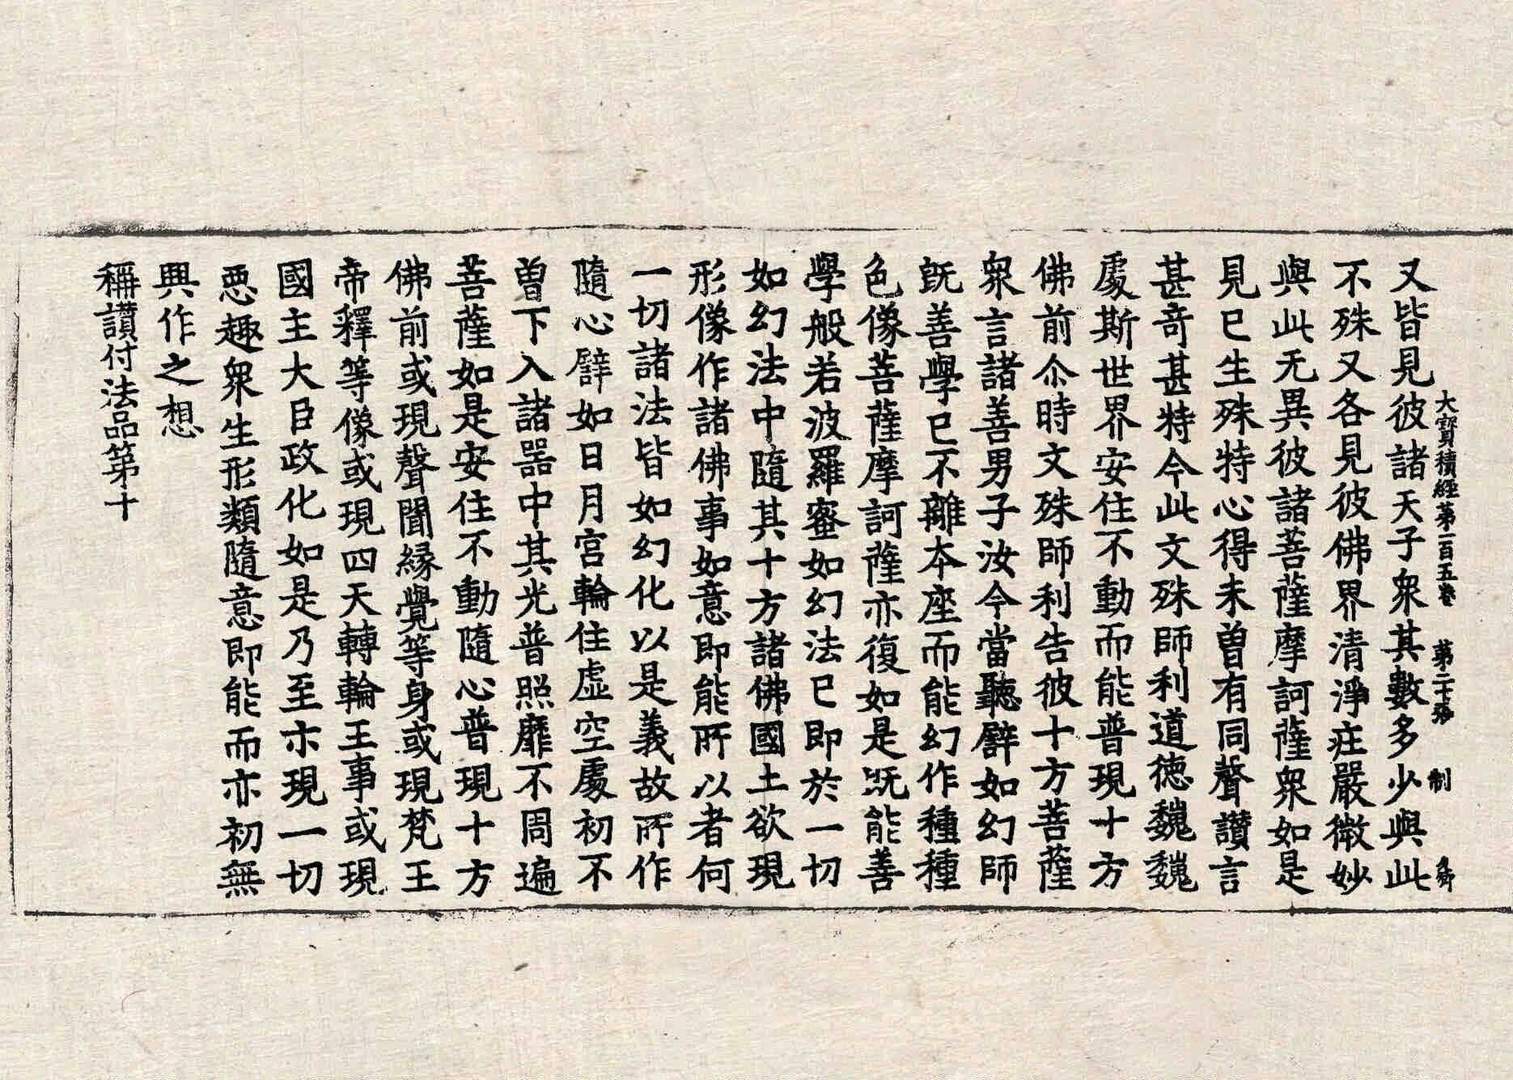 大寳積經第一百五卷 第二十張 制
又皆見彼諸天子衆其數多少與此
不殊又各見彼佛界清淨庄嚴微妙
與此无異彼諸菩薩摩訶薩衆如是
見已生殊特心得未曽有同聲讃言
甚奇甚特今此文殊師利道德巍巍
處斯世界安住不動而能普現十方
佛前尒時文殊師利告彼十方菩薩
衆言諸善男子汝今當聽譬如幻師
旣善學已不離本座而能幻作種種
色像菩薩摩訶薩亦復如是旣能善
學般若波羅蜜如幻法已即於一切
如幻法中隨其十方諸佛國土欲現
形像作諸佛事如意即能所以者何
一切諸法皆如幻化以是義故所作
隨心譬如日月宫輪住虛空處初不
曽下入諸器中其光普照靡不周遍
菩薩如是安住不動隨心普現十方
佛前或現聲聞縁覺等身或現梵王
帝釋等像或現四天轉輪王事或現
國主大臣政化如是乃至亦現一切
惡趣衆生形類隨意即能而亦初無
興作之想
稱讃付法品第十